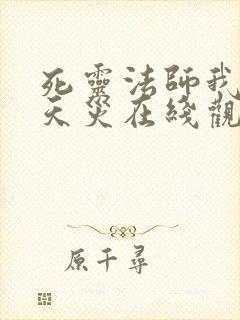 死靈法師我
天災在綫觀
原千尋